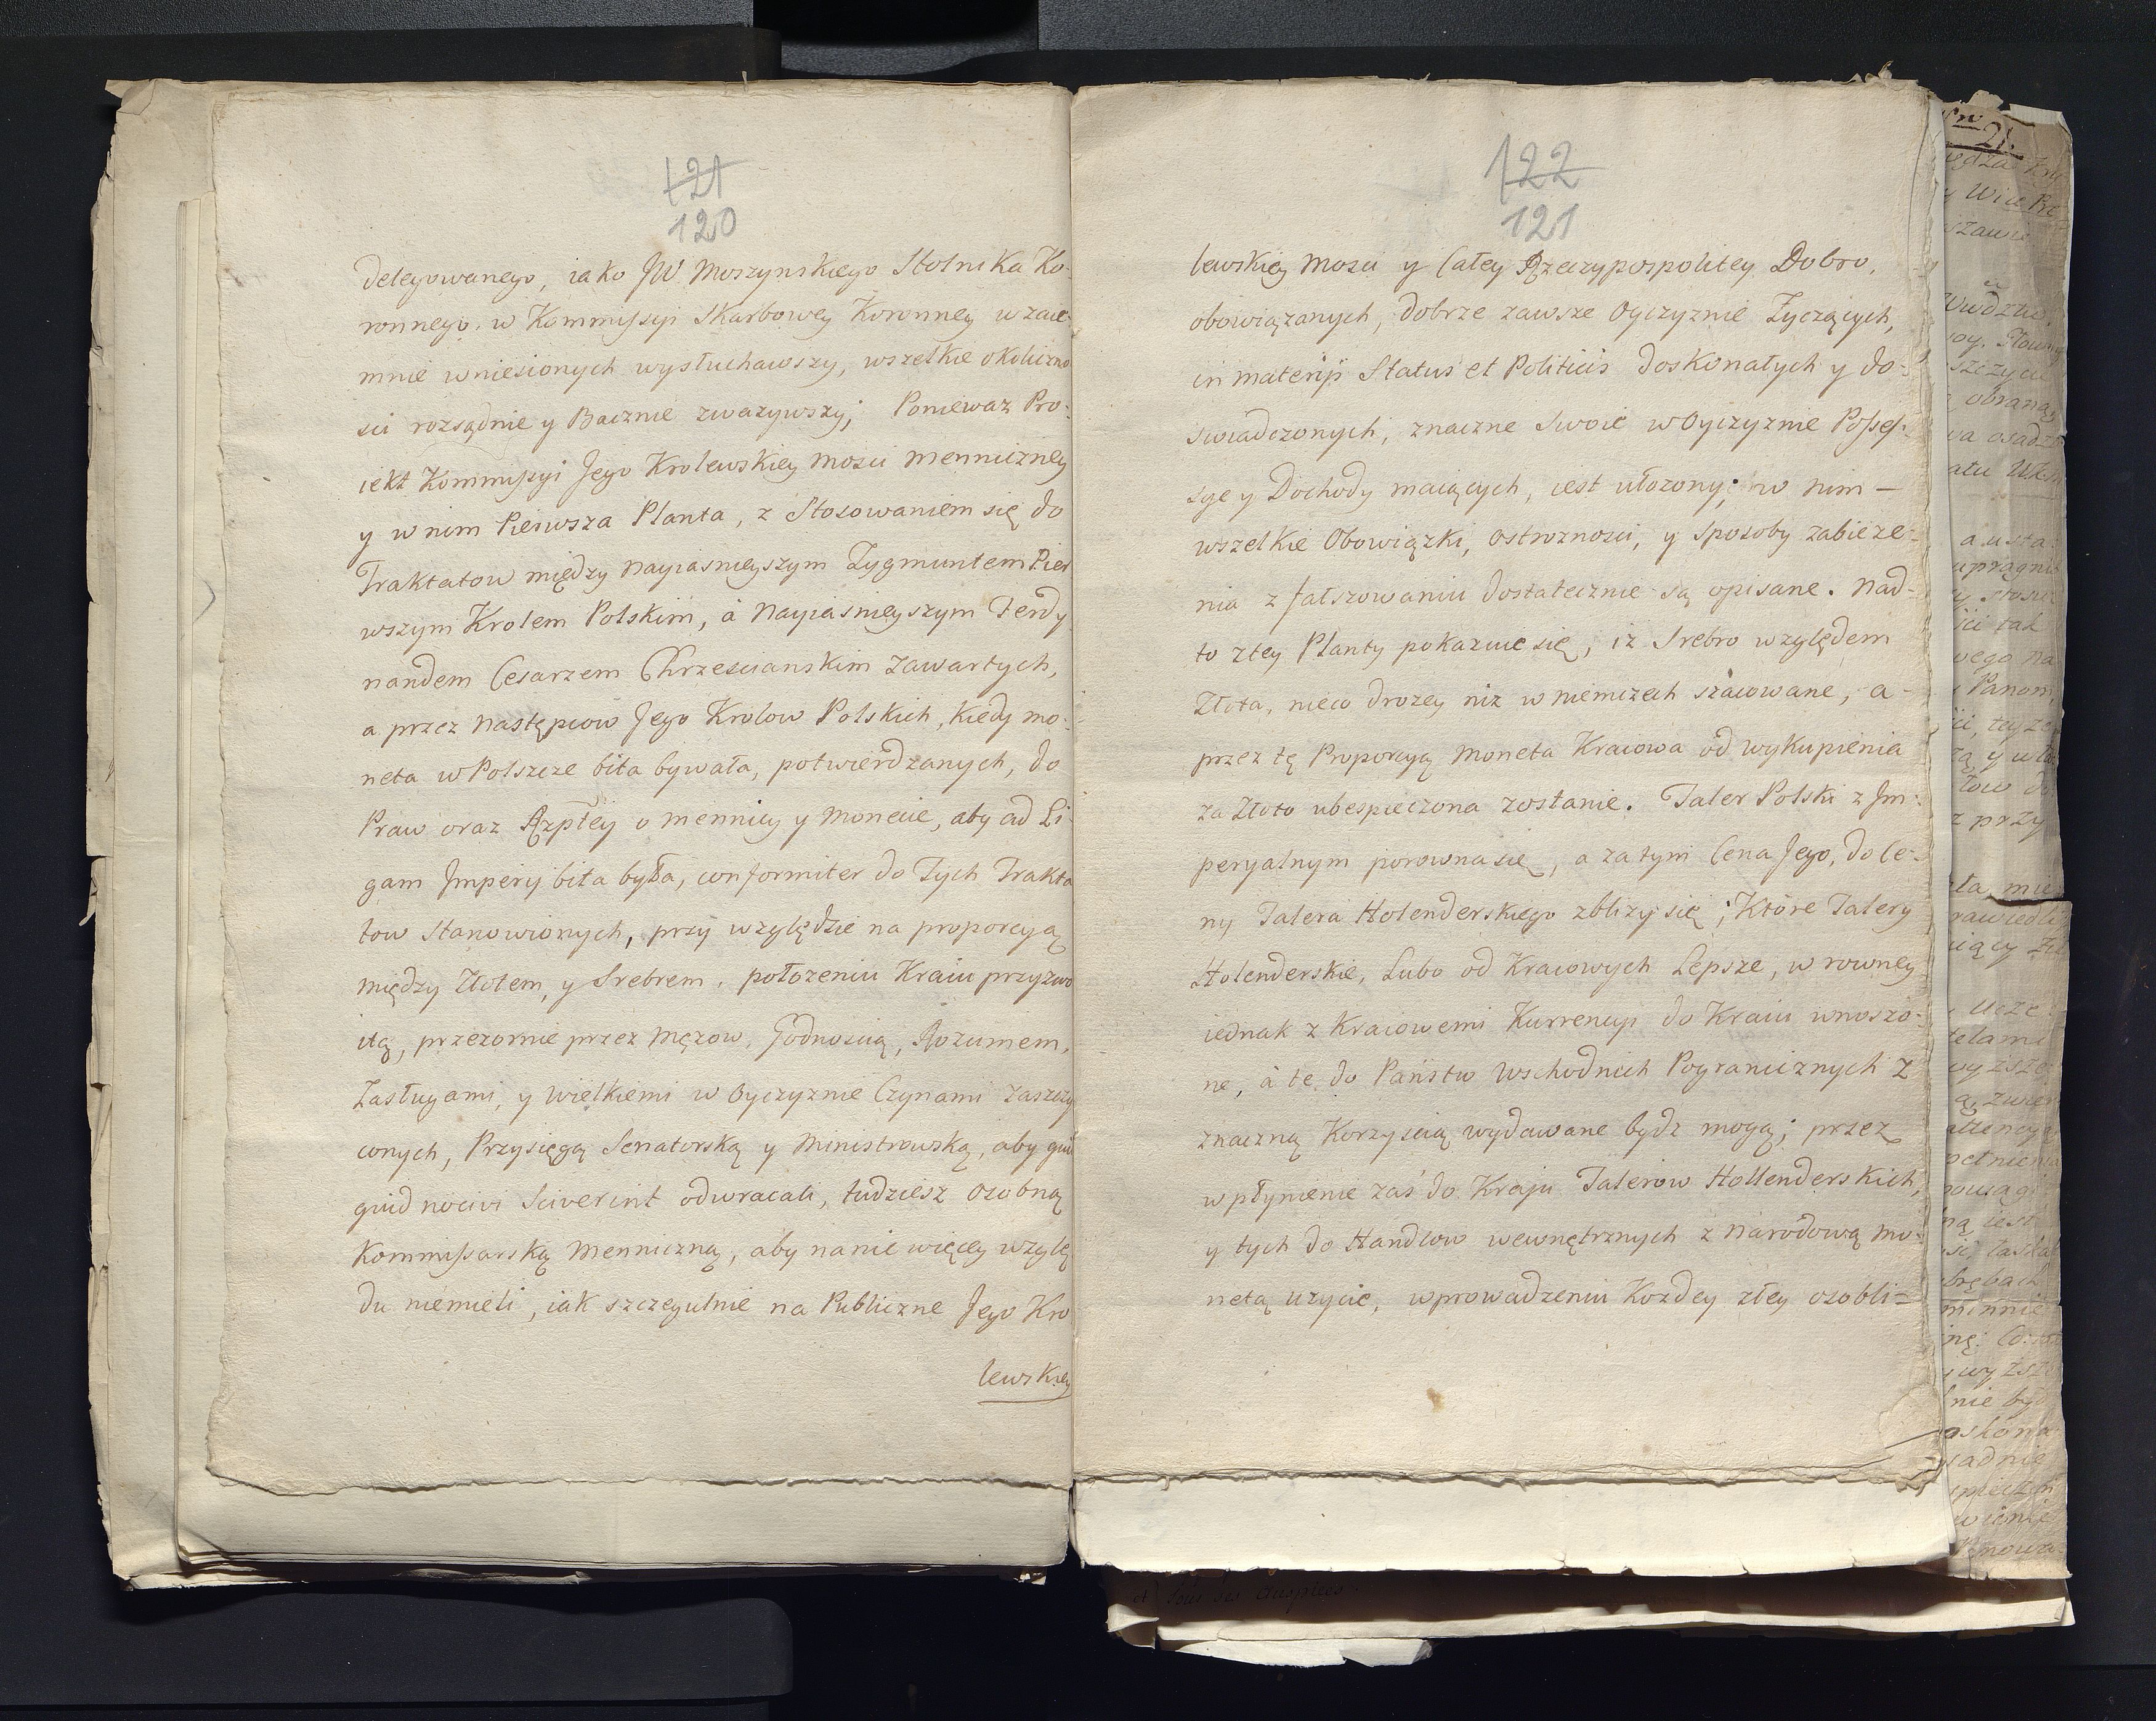 121
120
delegowanego, iako JW Moszynskiego Stolnika Ko-
ronnego, w Kommissyi Skarbowey Koronney wzaie-
mnie wniesionych wysłuchawszy, wszelkie okoliczno-
sci rozsądnie y Bacznie zwazywszy; Poniewaz Pro-
iekt Kommissyi Jego Krolewskiey Mosci Menniczney
y w nim Pierwsza Planta, z Stosowaniem się do
Traktatow między Nayiasnieyszym Zygmuntem Pier
wszym Krolem Polskim, à Nayiasnieyszym Ferdy
nandem Cesarzem Chrzescianskim zawartych,
a przez Następcow Jego Krolow Polskich, Kiedy mo-
neta w Polszcze bita bywała, potwierdzanych, do
Praw oraz Rzpłey o mennicy y monecie, aby ad Li-
gam Imperij bita była, conformiter do tych Trakta
tow Stanowionych, przy względzie na proporcyą
między Złotem, y Srebrem, połozeniu Kraiu przyzwo
itą, przezornie przez Męzow, Godnoscią, Rozumem,
Zasługami, y wielkiemi w Oyczyznie Czynami zaszczy
conych, Przysięgą Senatorską y Ministrowską, aby quid
quid nocivi Sciverint odwracali, tudziesz osobną
Kommissarską Menniczną, aby nanic więcey wzglę
du niemieli, iak szczegulnie na Publiczne Jego Kro
lewskiey
122
121
lewskiey Mosci y Całey Rzeczypospolitey Dobro,
obowiązanych, dobrze zawsze Oyczyznie Zyczących,
in materij Status et Politicis doskonałych y do-
swiadczonych, znaczne Swoie w Oyczyznie Posses-
sye y Dochody maiących, iest ułozony; w nim —
wszelkie Obowiązki, Ostroznosci, y Sposoby zabieze-
nia z fałszowaniu dostatecznie są opisane. Nad-
to z tey Planty pokazuie się, iz Srebro względem
Złota, nieco drozey niz w niemczech szacowane, a-
przez tę Proporcyą Moneta Kraiowa od wykupienia
za Złoto ubespieczona zostanie. Taler Polski z Im-
peryalnym porowna się, a zatym Cena Jego, do Ce-
ny Talera Holenderskiego zblizy się; Które Talery
Holenderskie, Lubo od Kraiowych Lepsze, w rowney
iednak z Kraiowemi Kurrencyi do Kraiu wnoszo-
ne, à te do Państw Wschodnich Pogranicznych z
znaczną Korzyscią wydawane bydz mogą; przez
wpłynienie zaś do Kraju Talerow Hollenderskich,
y tych do Handlow wewnętrznych z Narodową mo-
netą uzycie, wprowadzeniu Kozdey złey osobli=
21.